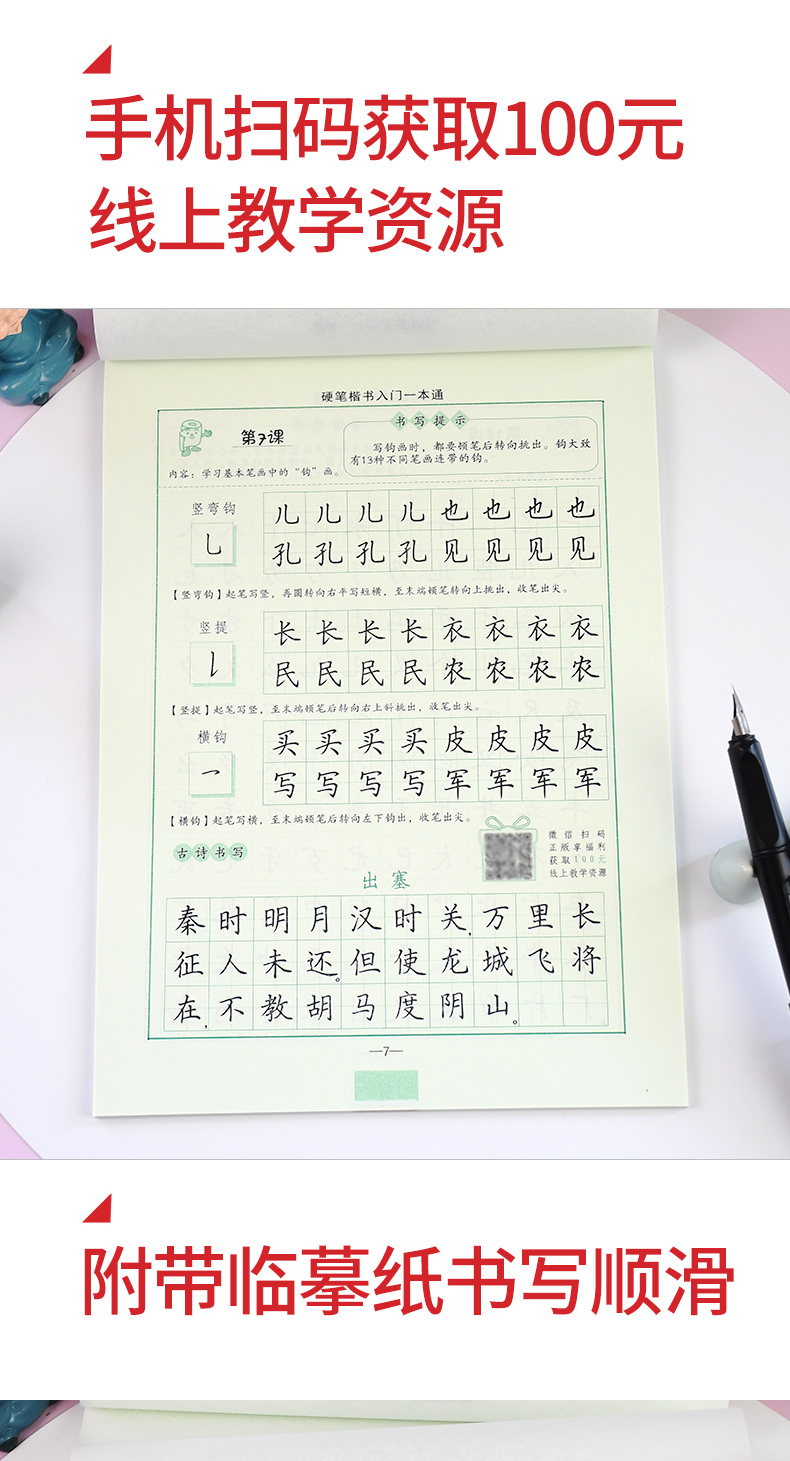 手机扫码获取100元
线上教学资源
硬笔楷书入门一本通
第7课
内容：学习基本笔画中的“钩”画。
书写提示
写钩画时，都要顿笔后转向挑出。钩大致
有13种不同笔画连带的钩。
竖弯钩
乚
儿儿儿儿也也也也
孔孔孔孔见见见见
【竖弯钩】起笔写竖，再圆转向右平写短横，至末端顿笔转向上挑出，收笔出尖。
竖提
长长长长衣衣衣衣
民民民民农农农农
【竖提】起笔写竖，至末端顿笔后转向右上斜挑出，收笔出尖。
横钩
买买买买皮皮皮皮
写写写写军军军军
【横钩】起笔写横，至末端顿笔后转向左下钩出，收笔出尖。
古诗书写
微信扫码
正版享福利
获取100元
线上教学资源
出塞
秦时明月汉时关，万里长
征人未还。但使龙城飞将
在，不教胡马度阴山。
—7—
附带临摹纸书写顺滑